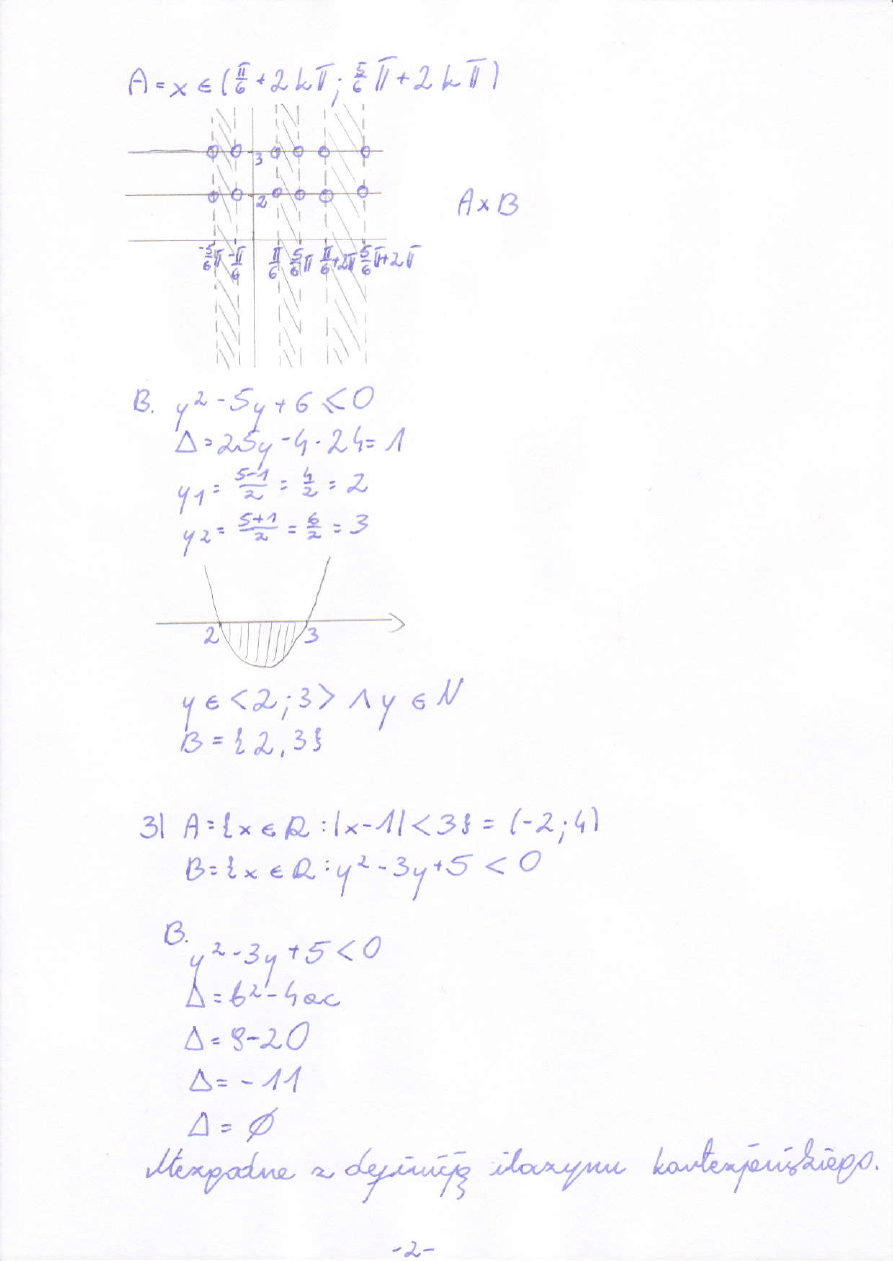 A = x ∈ (π/6 + 2kπ ; 5/6 π + 2kπ)
3
2
A x B
-5/6 π -π/6 π/6 5/6 π π/6 + 2π 5/6 π + 2π
B. y² - 5y + 6 ≤ 0
Δ = 25y - 4 · 24 = 1
y1 = 5-1/2 = 4/2 = 2
y2 = 5+1/2 = 6/2 = 3
2 3
y ∈ <2 ; 3> ∧ y ∈ N
B = {2, 3}
3) A = {x ∈ R : |x - 1| < 3} = (-2 ; 4)
B = {x ∈ R : y² - 3y + 5 < 0
B.
y² - 3y + 5 < 0
Δ = b² - 4ac
Δ = 9 - 20
Δ = - 11
Δ = ∅
Niezgodne z definicją iloczynu kartezjańskiego.
-2-